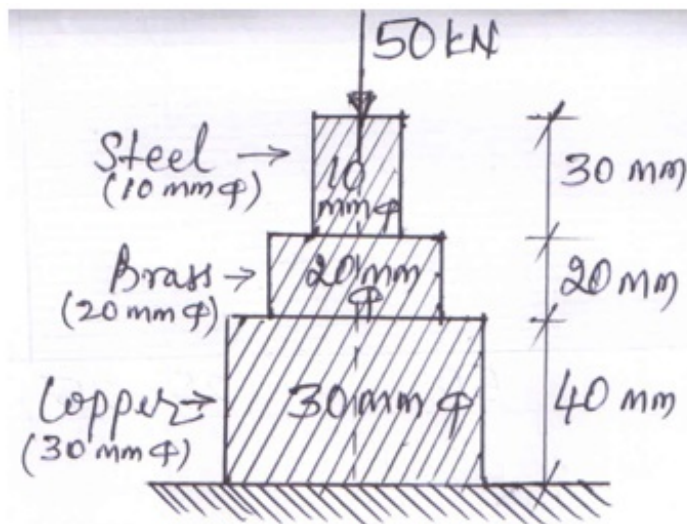 50 kN
Steel →
(10 mm φ)
10
mm φ
30 mm
Brass →
(20 mm φ)
20 mm
φ
20 mm
Copper →
(30 mm φ)
30 mm φ
40 mm